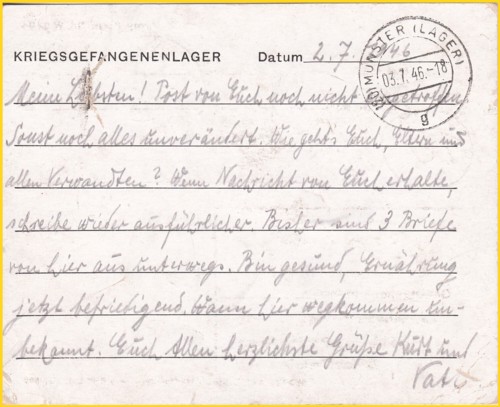 KRIEGSGEFANGENENLAGER Datum 2. 7. 1946
MUNSTER (LAGER)
03.7.46.-18
g
Meine L! Post von Euch noch nicht eingetroffen.
Sonst noch alles unverändert. Wie geht's Euch, Eltern und
allen Verwandten? Wenn Nachricht von Euch erhalte,
schreibe wieder ausführlicher. Bisher sind 3 Briefe
von hier aus unterwegs. Bin gesund, Ernährung
jetzt befriedigend. Wann hier wegkommen un-
bekannt. Euch Allen herzlichste Grüße Kurt und
Vati